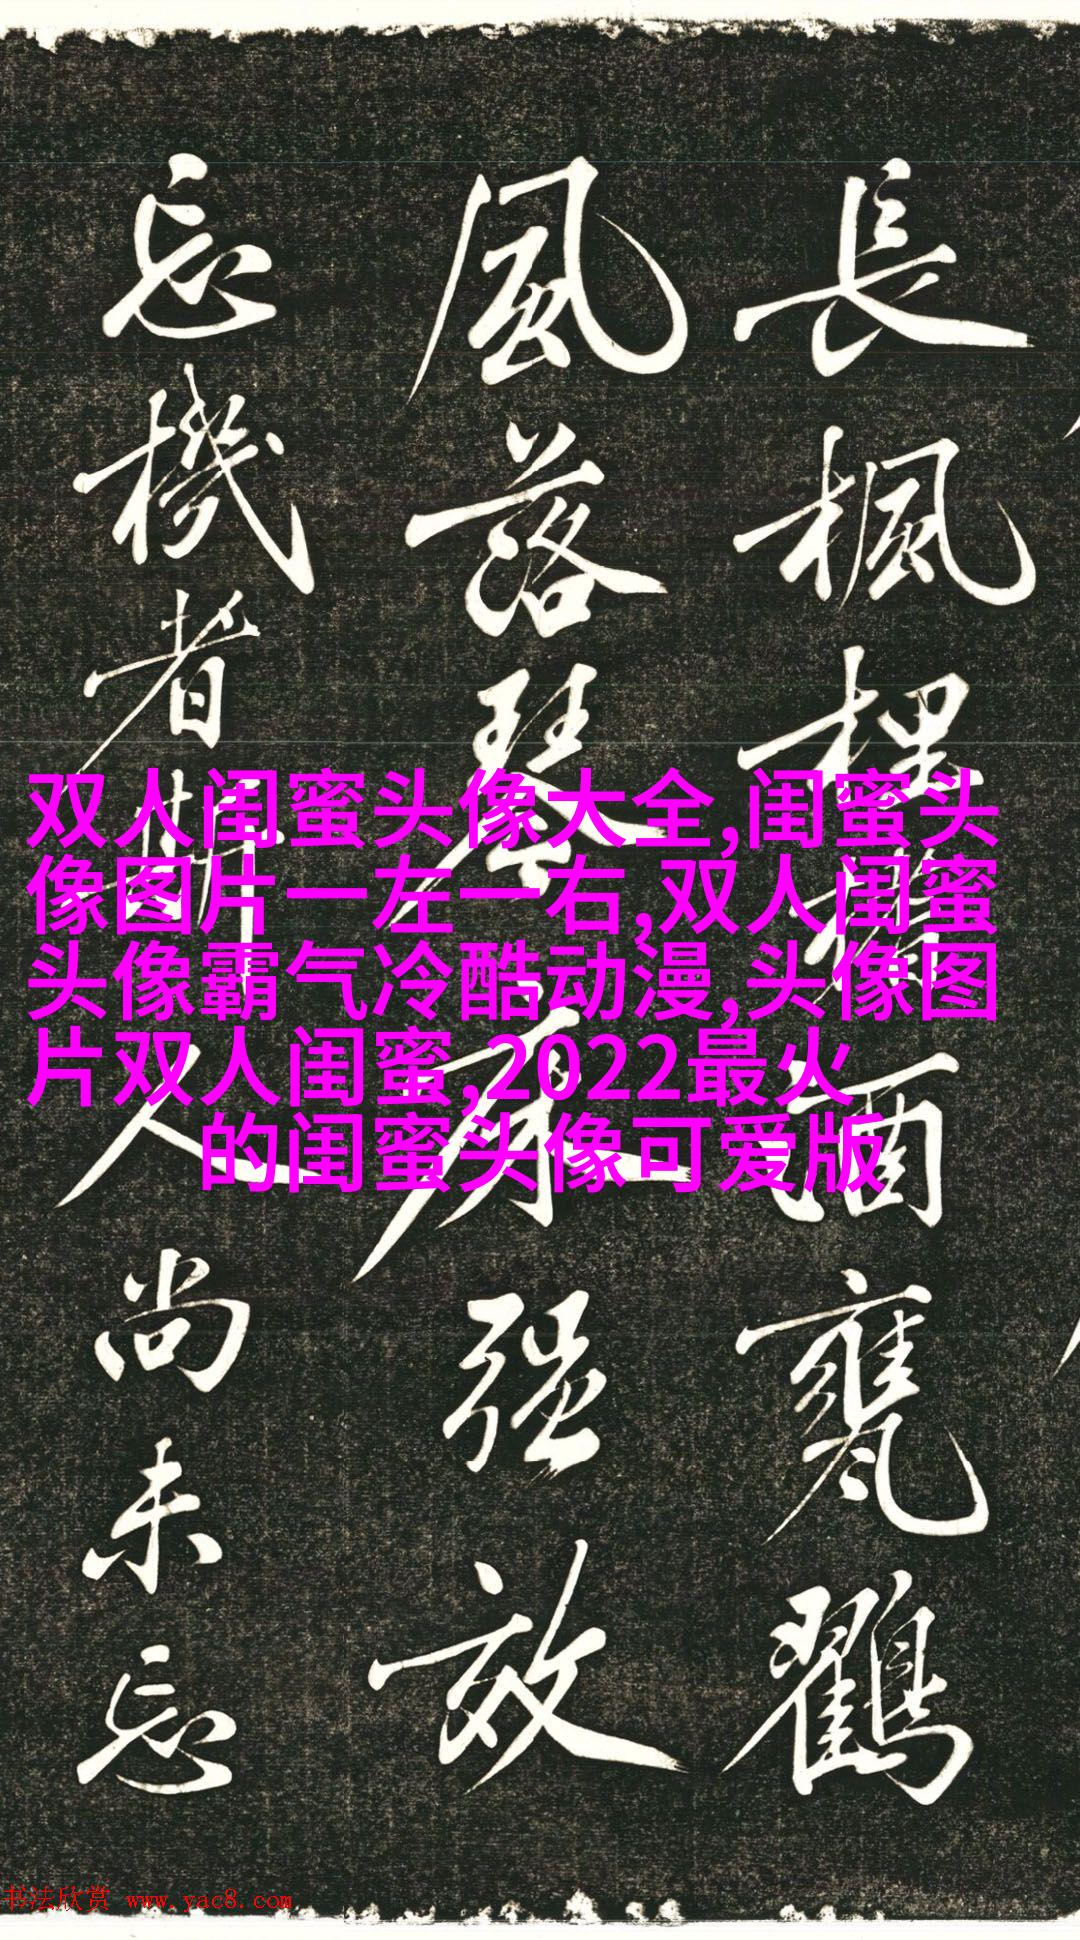 長楓桯橊酒甕鸛
風落琴床强效
忘機者期人尚未忘
双人闺蜜头像大全,闺蜜头
像图片一左一右,双人闺蜜
头像霸气冷酷动漫,头像图
片双人闺蜜,2022最火
的闺蜜头像可爱版
书法欣赏 www.yac8.com